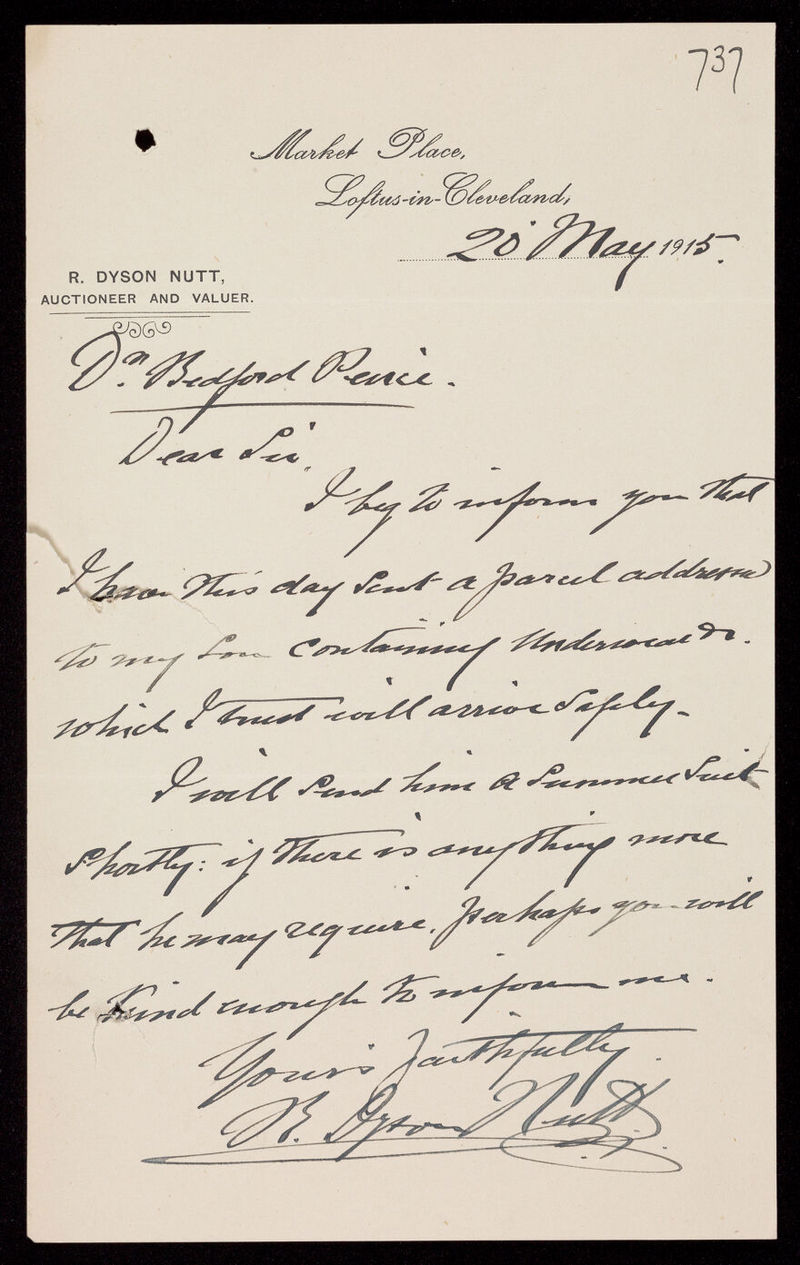 737
Market Place,
Loftus-in-Cleveland,
20 May 1915.
R. DYSON NUTT,
AUCTIONEER AND VALUER.
Dr. Bedford Peirce.
Dear Sir,
I beg to inform you that
I have this day sent a parcel addressed
to my Son containing Underwear &c.
which I trust will arrive safely -
I will send him a Summer Suit
shortly: if there is anything more
that he may require, perhaps you will
be kind enough to inform me.
Yours faithfully.
R. Dyson Nutt